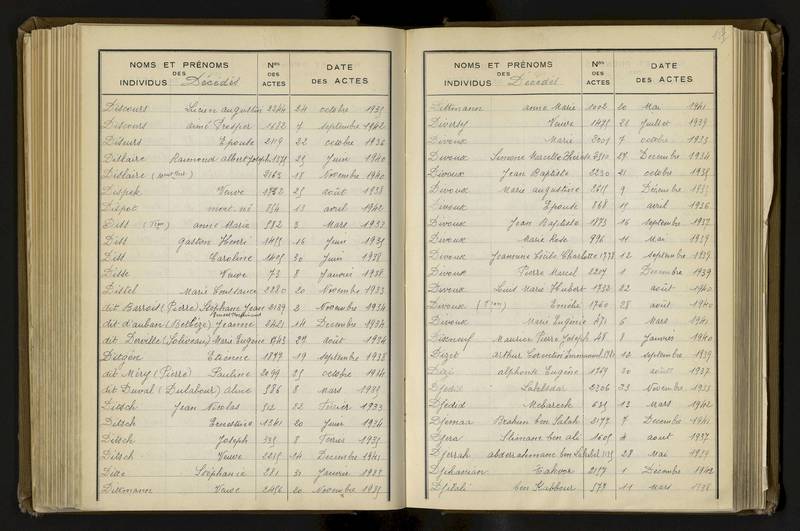 NOMS ET PRÉNOMS DES INDIVIDUS Décédés Nos DES ACTES DATE DES ACTES
Discours Lucien Augustin 2244 24 octobre 1935
Discours Aimé Prosper 1632 7 septembre 1942
Diseurs Epouse 2119 22 octobre 1936
Dislaire Raymond Albert Joseph 25 Juin 1940
Dislaire 2163 18 Novembre 1940
Dispek Veuve 25 août 1938
Dispot mort-né 854 13 avril 1942
Diss Anne Marie 582 3 Mars 1933
Diss Gaston Henri 16 Juin 1935
Diss Caroline 30 Juin 1938
Disse Veuve 73 8 Janvier 1938
Distel Marie Constance 2280 20 Novembre 1933
dit Berrois (Pierre) Stéphane Jean 2139 2 Novembre 1934
dit d'auban (Barbèze) Jeanne 2421 14 Decembre 1934
dit Derville Marie Eugène 27 août 1934
Ditgen Etienne 19 septembre 1938
dit Méry (Pierre) Pauline 2099 25 octobre 1934
dit Duval (Dulabour) Aline 586 8 Mars 1935
Ditsch Jean Nicolas 22 Février 1933
Ditsch Ernestine 1341 20 Juin 1934
Ditsch Joseph 8 Février 1935
Ditsch Veuve 24 Decembre 1941
Ditte Stéphanie 221 31 Janvier
Dittmann Veuve 20 Novembre 1935
NOMS ET PRÉNOMS DES INDIVIDUS Décédés Nos DES ACTES DATE DES ACTES
Dittmann Anne Marie 1002 20 Mai 1941
Diversy Veuve 1475 28 Juillet 1939
Divoux Marie 2001 7 octobre 1933
Divoux Simone Marcelle Thérèse 27 Decembre 1934
Divoux Jean Baptiste 2230 21 octobre 1935
Divoux Marie Augustine 9 Décembre 1935
Divoux Epouse 868 15 avril 1936
Divoux Jean Baptiste 1873 16 septembre 1937
Divoux Marie Rose 996 11 Mai 1939
Divoux Jeannine Cécile Charlotte 1778 12 septembre 1939
Divoux Pierre Marcel 2257 1 Decembre 1939
Divoux Louis Marie Hubert 1732 22 août 1940
Divoux Emélie 1760 28 août 1940
Divoux Marie Eugénie 471 6 Mars 1941
Dixneuf Maurice Pierre Joseph 48 8 Janvier 1940
Dizet Arthur Corentin 12 septembre 1939
Dizi Alphonse Eugène 1769 30 août 1937
Djedid Lakhdar 2306 23 Novembre 1933
Djedid Mebareck 635 13 Mars 1942
Djemaa Brahim ben Salah 2177 7 Decembre 1941
Djera Slimane ben ali 1605 4 août 1937
Djerrah abderrahmane ben Lakhdar 28 Mai 1939
Hakvor 2157 1 Décembre 1942
Djilali ben Kabbour 573 11 Mars 1938